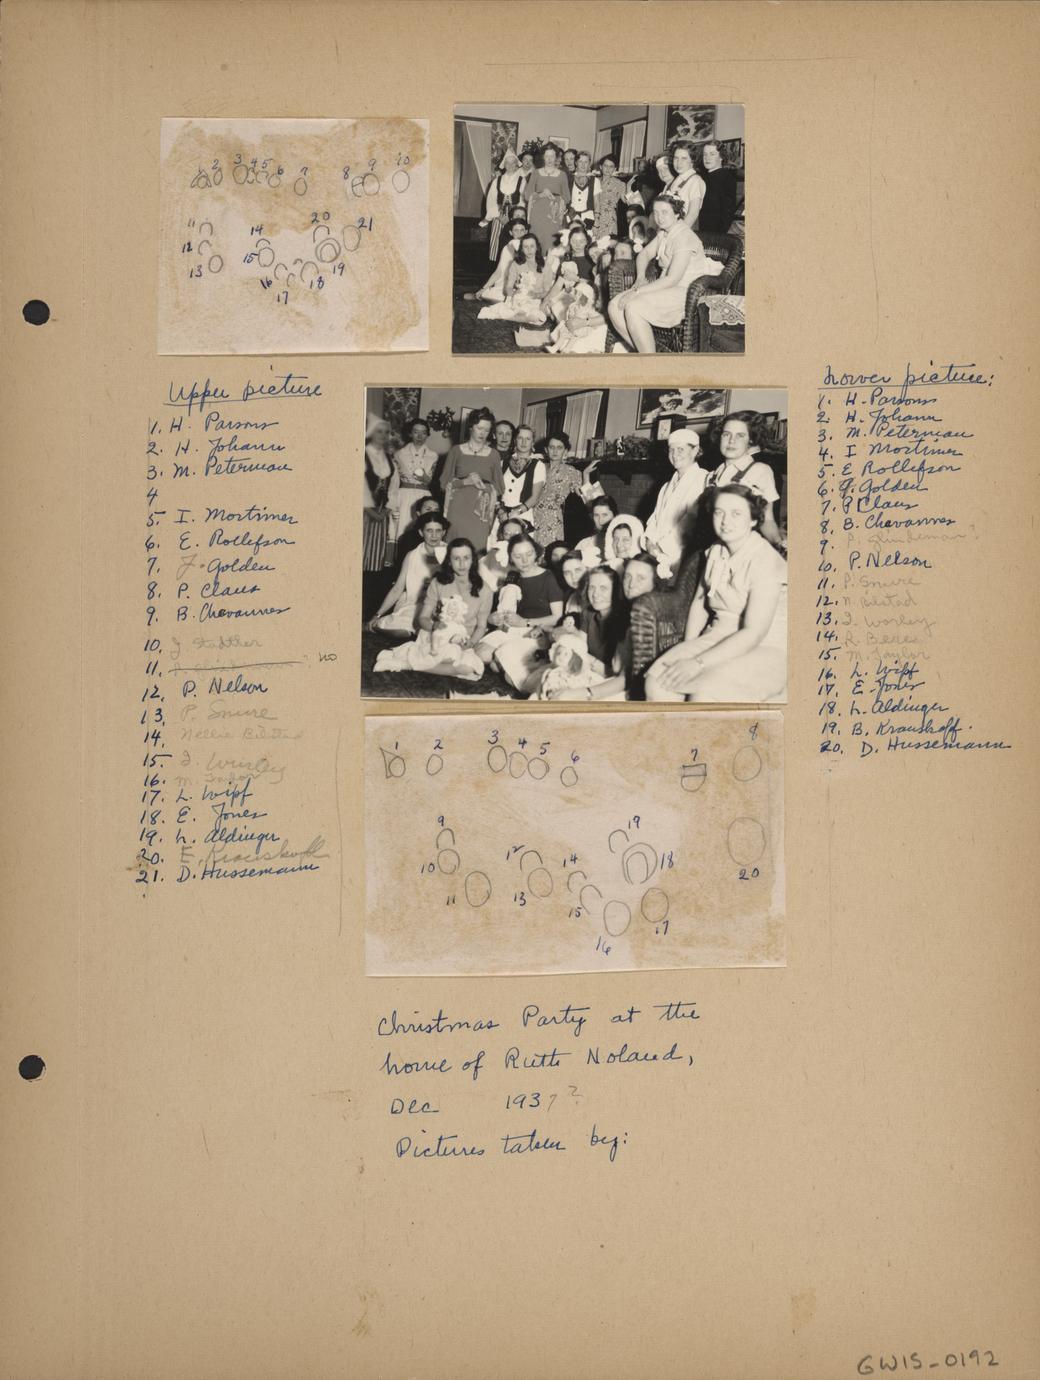 1 2 3 4 5 6 7 8 9 10
11 12 13 14 15 16 17 18 19 20 21
Upper picture
1. H. Parsons
2. H. Johann
3. M. Peterman
4
5. I. Mortimer
6. E. Rollefson
7. J. Golden
8. P. Claus
9. B. Chavannes
10. J Stadtler
11. ? no
12. P. Nelson
13. P. Smure
14. Nellie Bilstad
15. I. Worley
16. M. Taylor
17. L. Wipf
18. E. Jones
19. L. Aldinger
20. E. Krauskopf
21. D. Hussemann
Lower picture:
1. H. Parsons
2. H. Johann
3. M. Peterman
4. I Mortimer
5. E Rollefson
6. J. Golden
7. P Claus
8. B. Chavannes
9. ?
10. P. Nelson
11. P. Smure
12. N. Bilstad
13. I. Worley
14. R. Beree
15. M. Taylor
16. L. Wipf
17. E. Jones
18. L. Aldinger
19. B. Krauskopf.
20. D. Hussemann
1 2 3 4 5 6 7 8
9 10 11 12 13 14 15 16 17 18 19 20
Christmas Party at the
home of Ruth Noland,
Dec 1937?
Pictures taken by:
GWIS-0192